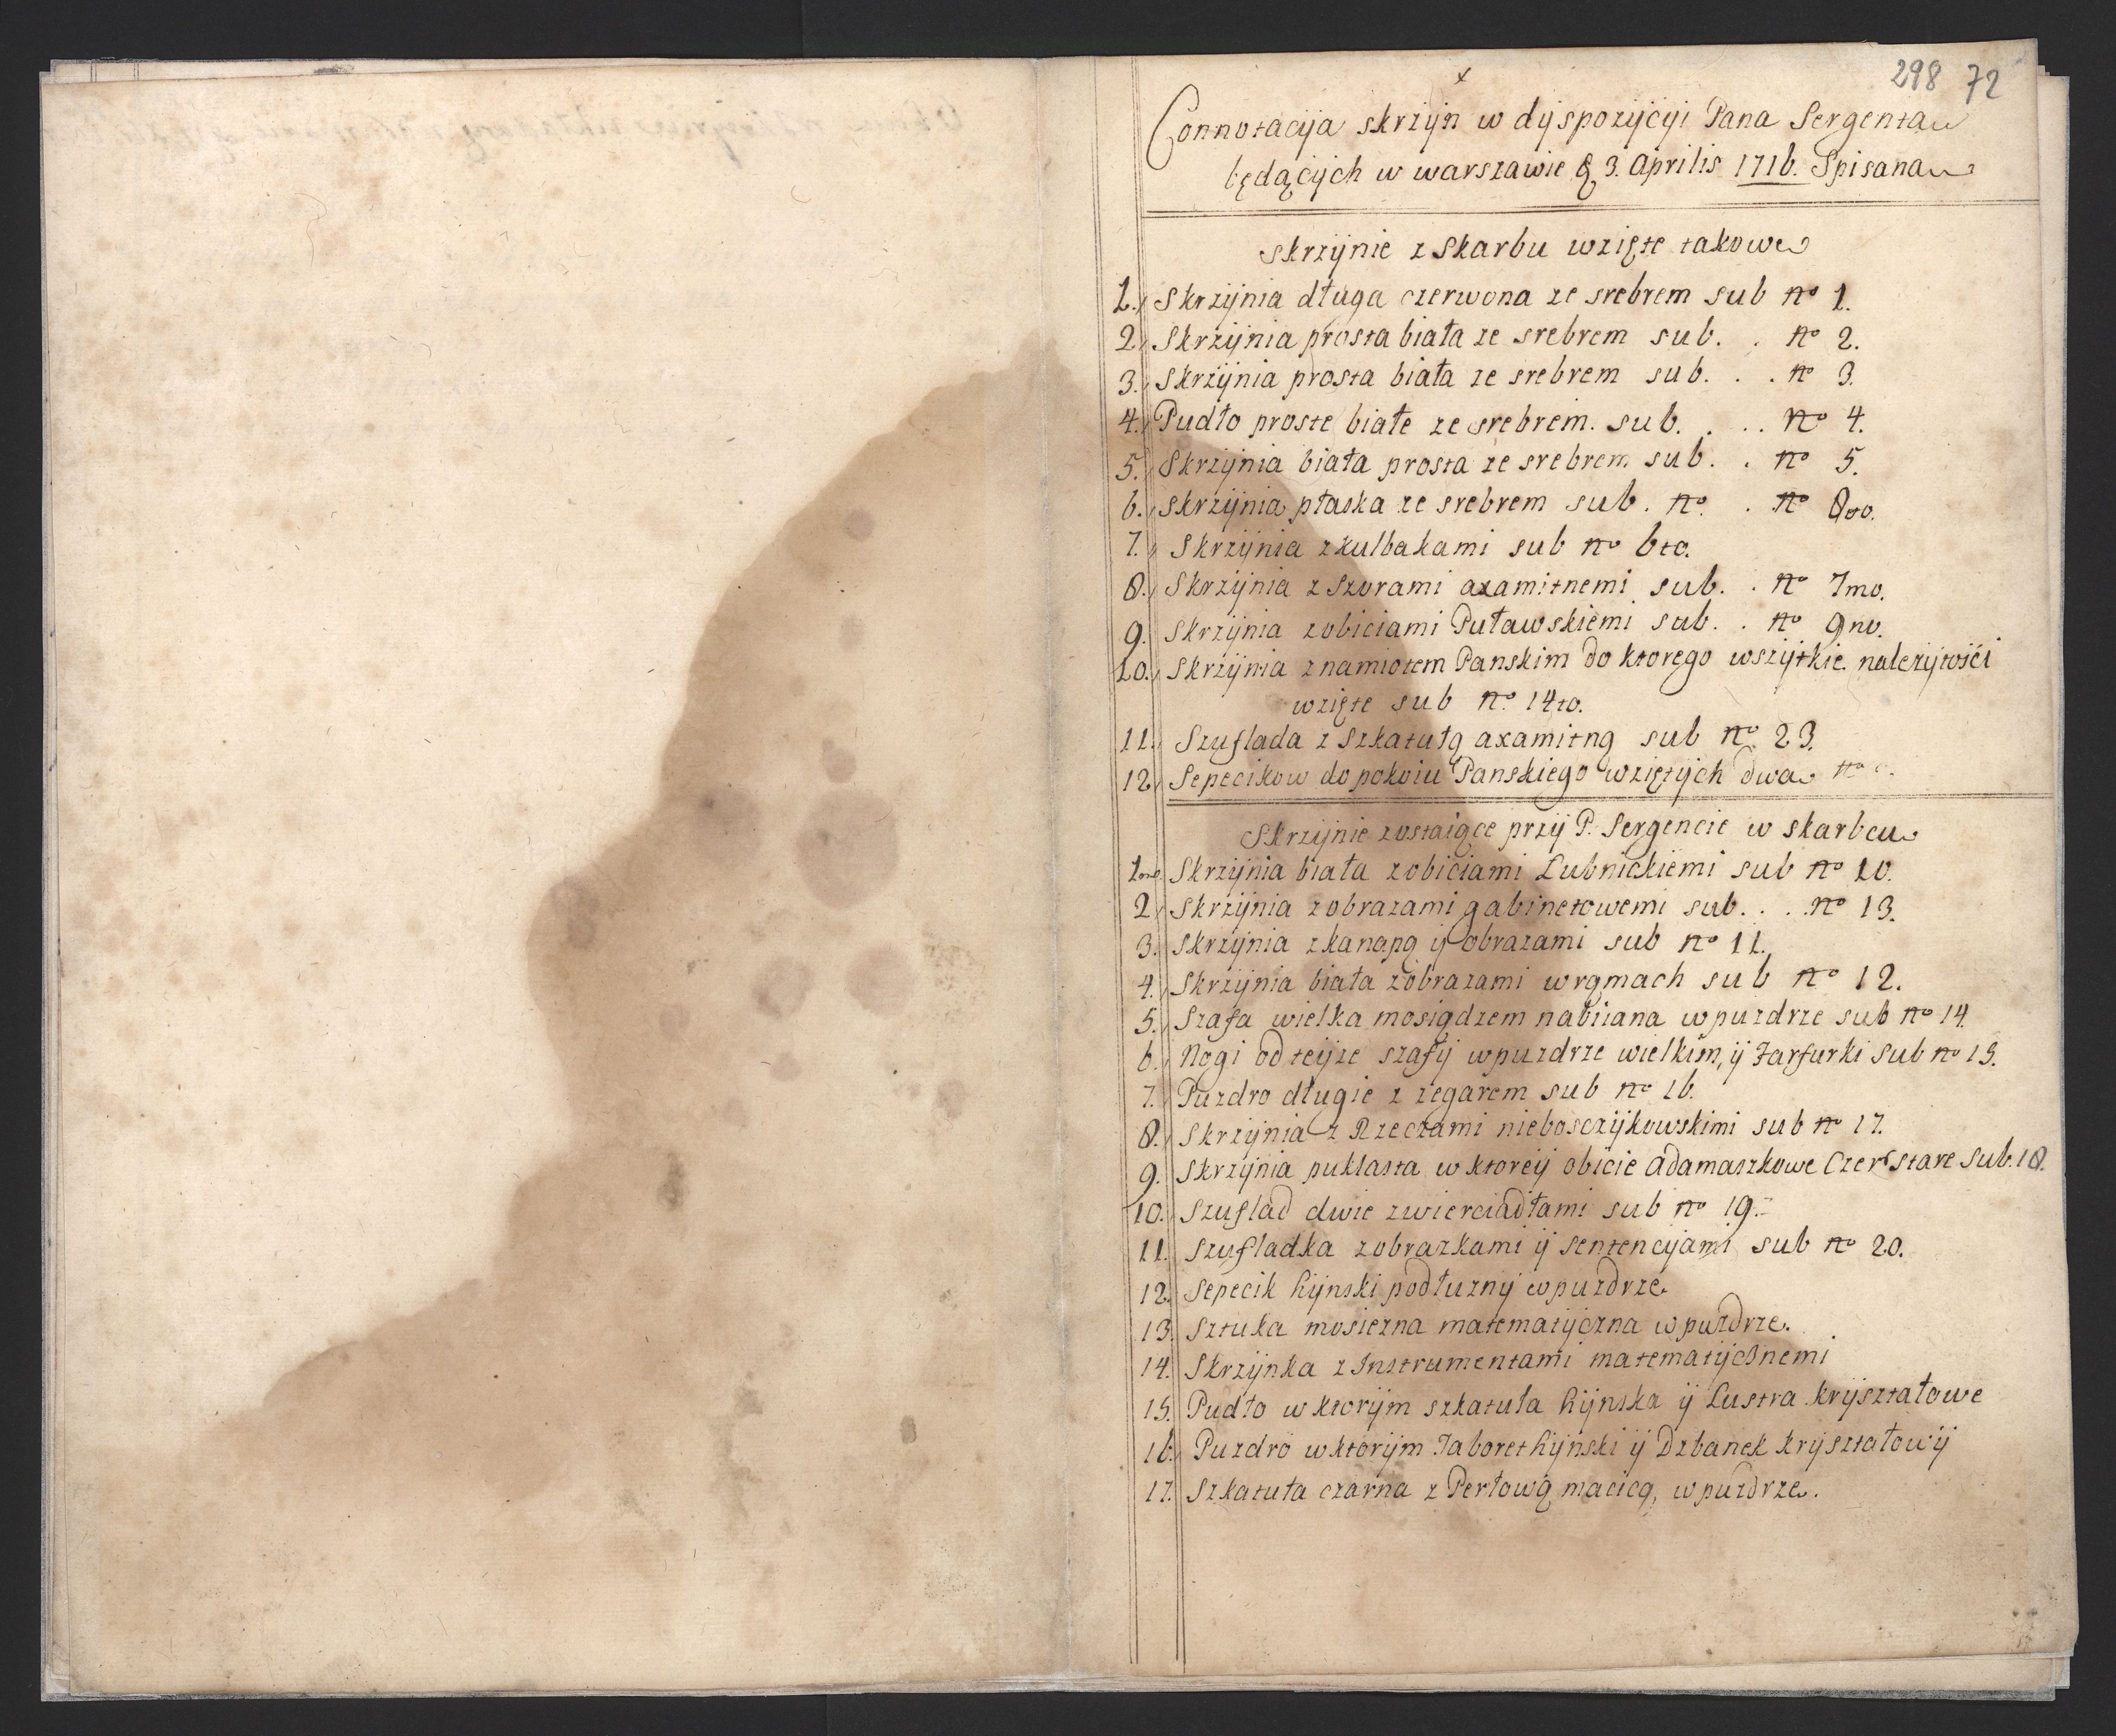 298 72
Connotacyja skrzyn w dyspozycyi Pana Sergenta
będących w warszawie 3. Aprilis 1716. Spisana
Skrzynie z Skarbu wzięte takowe
1. Skrzynia długa czerwona ze srebrem sub no 1.
2. Skrzynia prosta biała ze srebrem sub. . no 2.
3. Skrzynia prosta biała ze srebrem sub. . . no 3.
4. Pudło proste białe ze srebrem. sub. . . . no 4.
5. Skrzynia biała prosta ze srebrem sub. . no 5.
6. Skrzynia płaska ze srebrem sub. no. . no 8vo.
7. Skrzynia z kulbakami sub no 6to.
8. Skrzynia z Szorami axamitnemi sub. . no 7mo.
9. Skrzynia z obiciami Puławskiemi sub. . no 9no.
10. Skrzynia z namiotem Panskim do ktorego wszytkie należytości
wzięte sub no. 14to.
11. Szuflada z Szkatułą axamitną sub no. 23.
12. Sepecikow do pokoiu Panskiego wziętych dwa no
Skrzynie zostaiące przy P. Sergencie w skarbcu
1mo Skrzynia biała z obiciami Lubnickiemi sub no 10.
2. Skrzynia z obrazami gabinetowemi sub. . . no 13.
3. Skrzynia z kanapą y obrazami sub no 11.
4. Skrzynia biała z obrazami w rąmach sub no 12.
5. Szafa wielka mosiądzem nabiiana w puzdrze sub no 14.
6. Nogi od teyze szafy w puzdrze wielkim, y Farfurki Sub no 15.
7. Puzdro długie z zegarem sub no 16.
8. Skrzynia z Rzeczami nieboszczykowskimi sub no 17.
9. Skrzynia puklasta w ktorey obicie adamaszkowe Czer stare Sub. 18.
10. Szuflad dwie zwierciadłami sub no 19.
11. Szufladka z obrazkami y sentencyami sub no 20.
12. Sepecik hynski podłuzny w puzdrze
13. Sztuka mosiezna matematyczna w puzdrze.
14. Skrzynka z Instrumentami matematycznemi
15. Pudło w ktorym szkatuła hynska y Lustra kryształowe
16. Puzdro w ktorym Taboret hynski y Dzbanek kryształowy
17. Szkatuła czarna z Perłową macicą, w puzdrze.